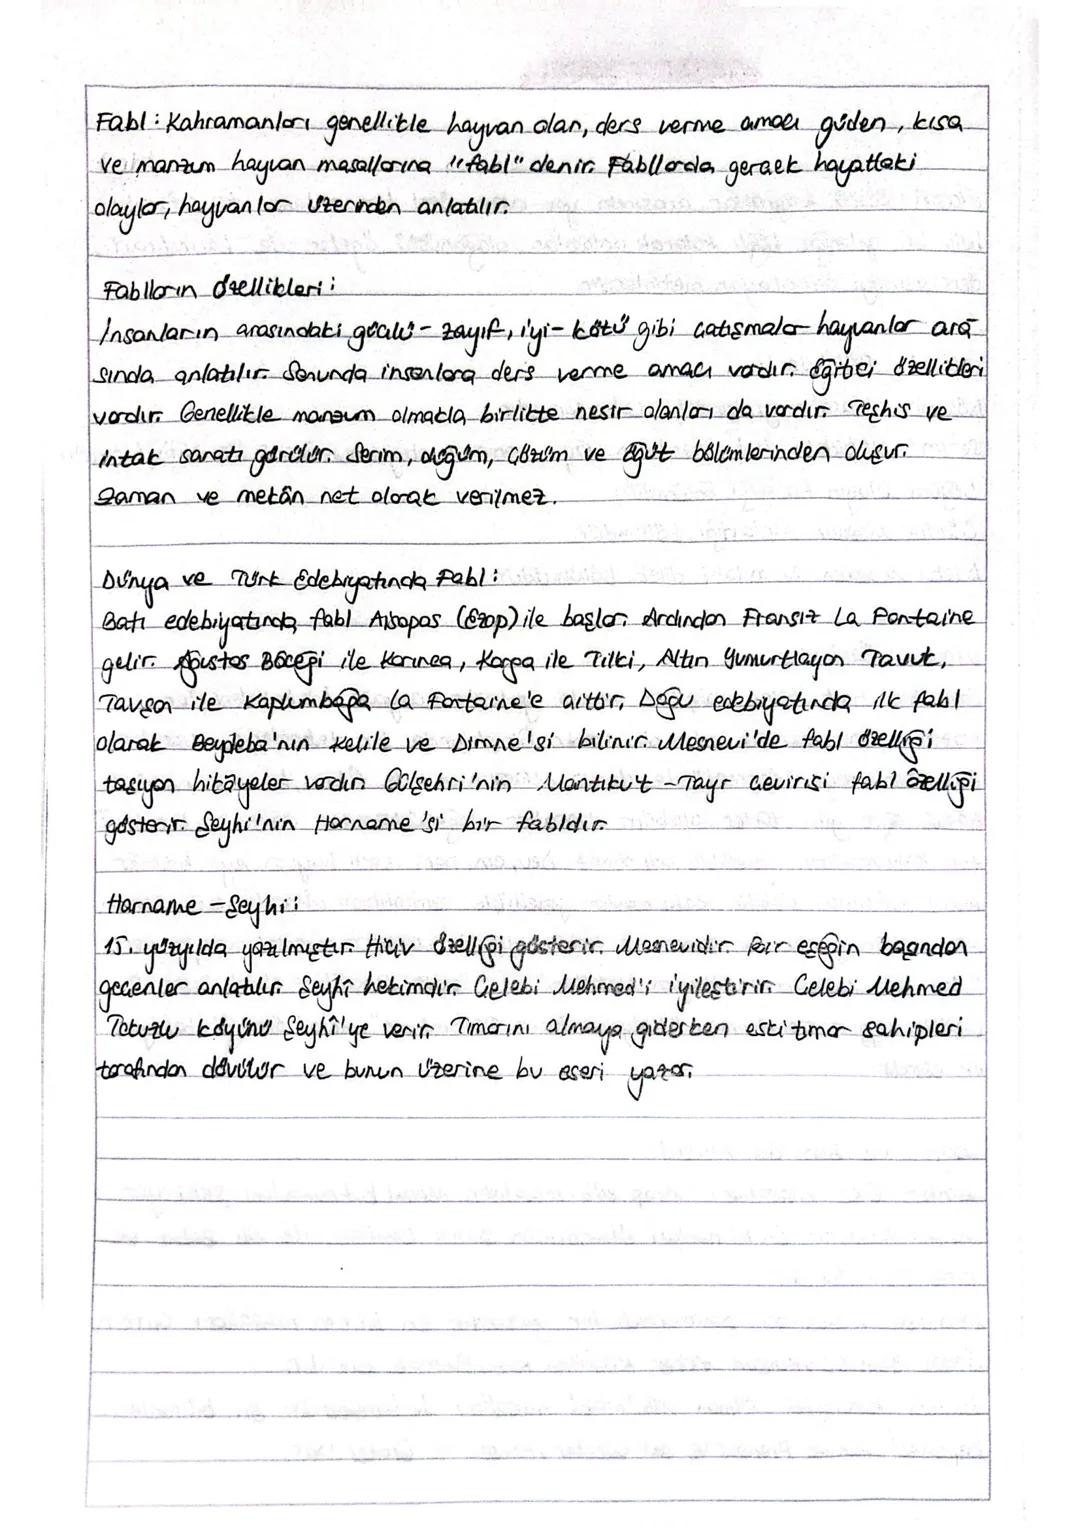 Fabl: Kahramanları genellikle hayvan olan, ders verme amacı güden, kısa
ve manzum hayvan masallarına "fabl" denir. Fabllarda gerçek hayattaki
olaylar, hayvanlar üzerinden anlatılır.
Fablların özellikleri:
İnsanların arasındaki güçlü - zayıf, iyi - kötü gibi çatışmalar hayvanlar ara
sında anlatılır. Sonunda insanlara ders verme amacı vardır. Eğitici özellikleri
vardır. Genellikle manzum olmakla birlikte nesir olanları da vardır. Teşhis ve
intak sanatı görülür. Serim, düğüm, çözüm ve öğüt bölümlerinden oluşur.
Zaman ve mekân net olarak verilmez.
Dünya ve Türk Edebiyatında Fabl:
Batı edebiyatında fabl Aisopos (Ezop) ile başlar. Ardından Fransız La Fontaine
gelir. Ağustos Böceği ile Karınca, Karga ile Tilki, Altın Yumurtlayan Tavuk,
Tavşan ile Kaplumbağa La Fontaine'e aittir. Doğu edebiyatında ilk fabl
olarak Beydeba'nın Kelile ve Dimne'si bilinir. Mesnevi'de fabl özelliği
taşıyan hikâyeler vardır. Gülşehri'nin Mantıku't - Tayr çevirisi fabl özelliği
gösterir. Şeyhi'nin Harname'si bir fabldır.
Harname - Şeyhi:
15. yüzyılda yazılmıştır. Hiciv özelliği gösterir. Mesnevidir. Bir eşeğin başından
geçenler anlatılır. Şeyhî hekimdir. Çelebi Mehmed'i iyileştirir. Çelebi Mehmed
Tokuzlu köyünü Şeyhî'ye verir. Tımarını almaya giderken eski tımar sahipleri
tarafından dövülür ve bunun üzerine bu eseri yazar.